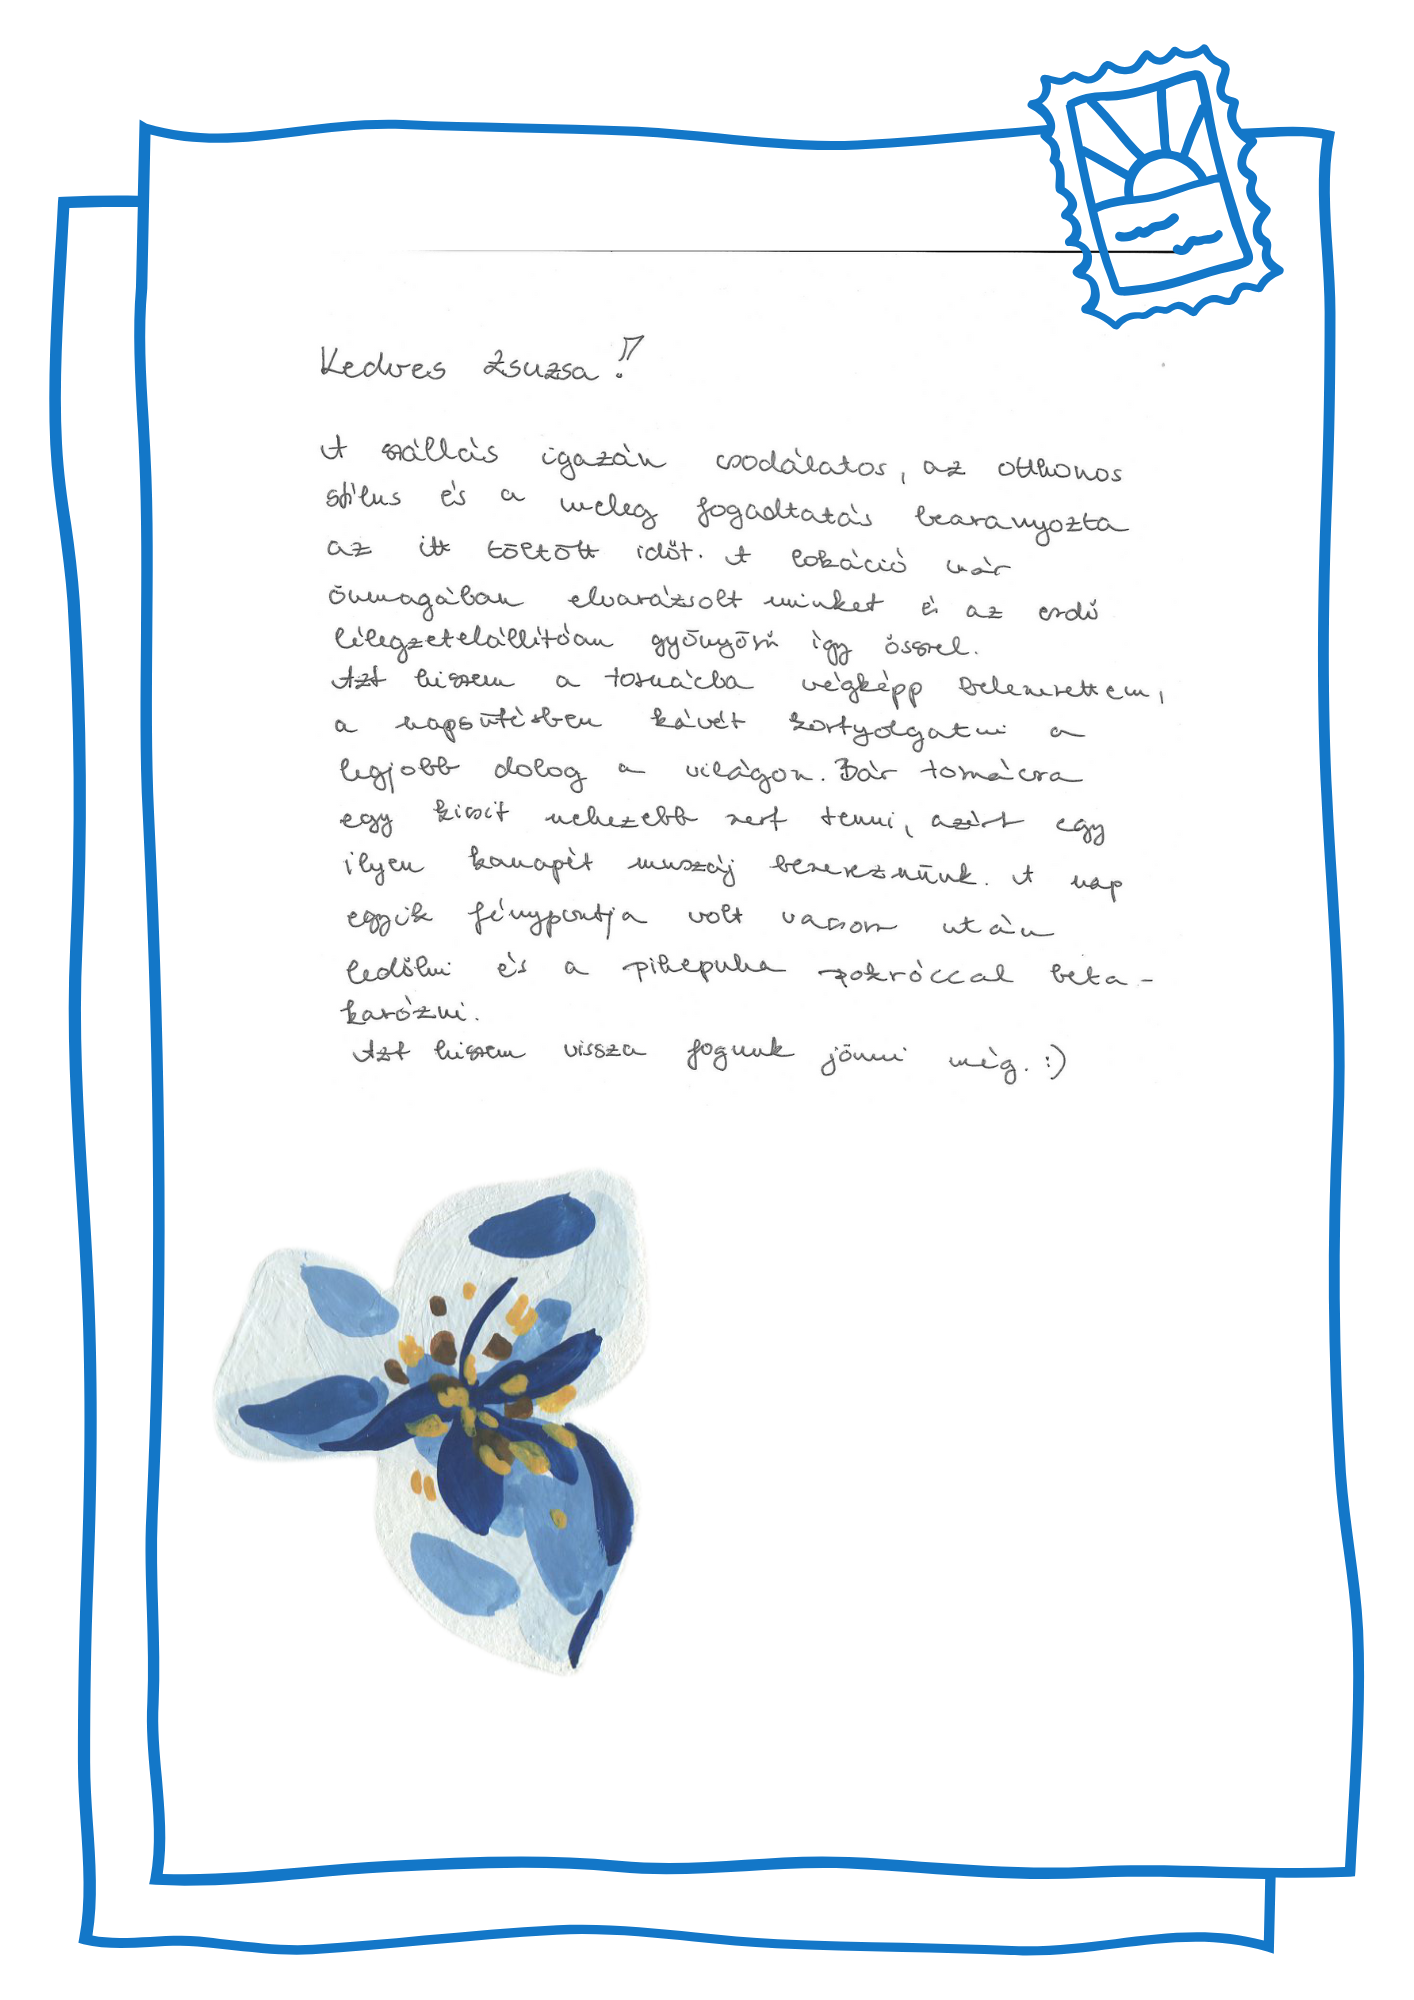 Kedves Zsuzsa!
A szállás igazán csodálatos, az otthonos
stílus és a meleg fogadtatás bearanyozta
az itt töltött időt. A lokáció már
önmagában elvarázsolt minket és az erdő
lélegzetelállítóan gyönyörű így ősszel.
Azt hiszem a tornácba végképp beleszerettem,
a napsütésben kávét kortyolgatni a
legjobb dolog a világon. Bár tornácra
egy kicsit nehezebb szert tenni, azért egy
ilyen kanapét muszáj beszereznünk. A nap
egyik fénypontja volt vacsora után
ledőlni és a pihepuha pokróccal beta-
karózni.
Azt hiszem vissza fogunk jönni még. :)